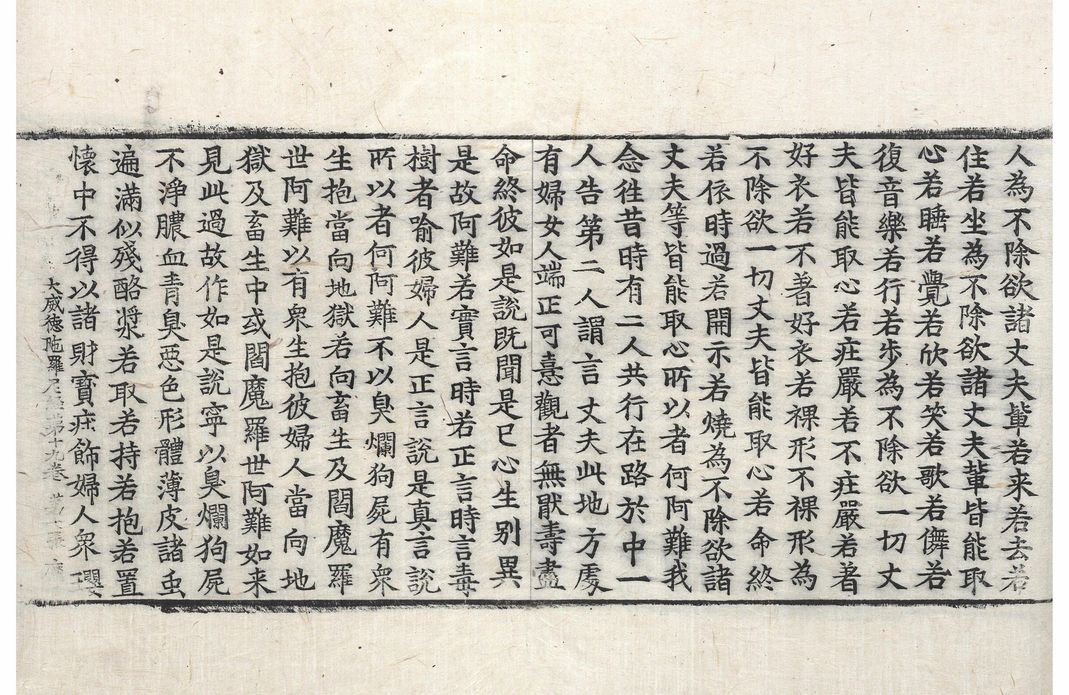 人為不除欲諸丈夫輩若来若去若
住若坐為不除欲諸丈夫輩皆能取
心若睡若覺若欣若笑若歌若儛若
復音樂若行若步為不除欲一切丈
夫皆能取心若疘嚴若不疘嚴若著
好衣若不著好衣若裸形不裸形為
不除欲一切丈夫皆能取心若命終
若依時過若開示若燒為不除欲諸
丈夫等皆能取心所以者何阿難我
念徃昔時有二人共行在路於中一
人告第二人謂言丈夫此地方處
有婦女人端正可憙觀者無猒壽盡
命終彼如是說既聞是已心生別異
是故阿難若實言時若正言時言毒
樹者喻彼婦人是正言說是真言說
所以者何阿難不以臭爛狗屍有衆
生抱當向地獄若向畜生及閻魔羅
世阿難以有衆生抱彼婦人當向地
獄及畜生中或閻魔羅世阿難如来
見此過故作如是說寧以臭爛狗屍
不淨膿血青臭惡色形體薄皮諸虫
遍滿似殘酪漿若取若持若抱若置
懐中不得以諸財寶疘飾婦人衆瓔
大威德陁羅尼經第十九卷 第 張